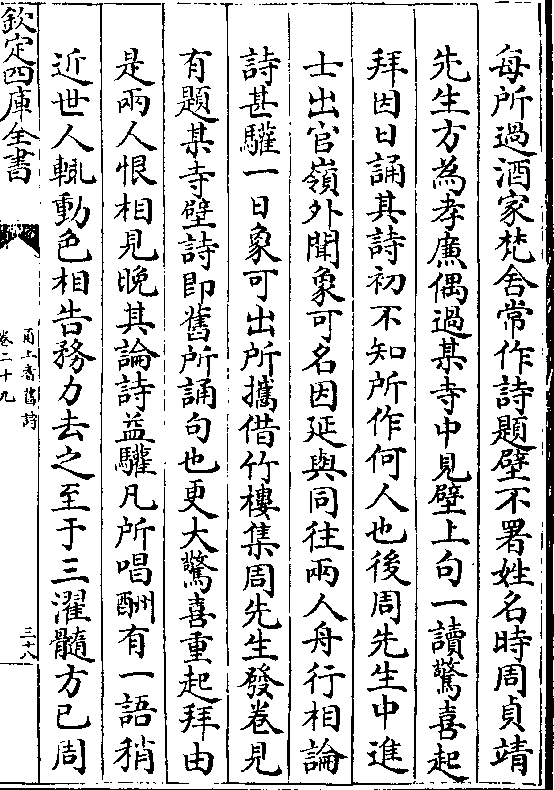 每所過酒家梵舍常作詩題壁不署姓名時周貞靖
先生方為孝廉偶過某寺中見壁上句一讀驚喜起
拜因日誦其詩初不知所作何人也後周先生中進
士出官嶺外聞象可名因延與同往兩人舟行相論
詩甚驩一日象可出所攜借竹樓集周先生發卷見
有題某寺壁詩即舊所誦句也更大驚喜重起拜由
是兩人恨相見晚其論詩益驩凡所唱酬有一語稍
近世人輒動色相告務力去之至于三濯髓方已周
欽定四庫全書
甬上耆舊詩
卷二十九
三十八